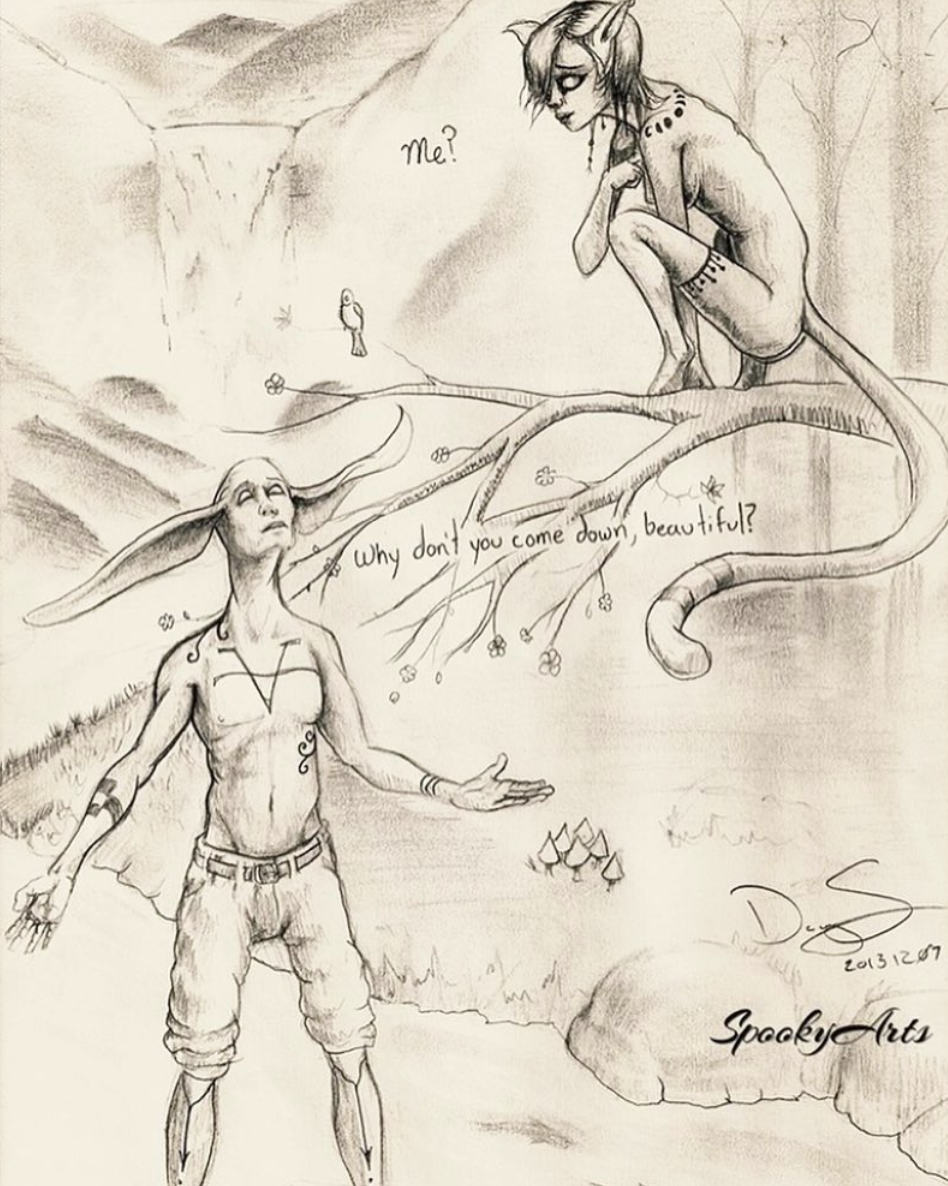 Me?
Why don't you come down, beautiful?
2013.12.07
SpookyArts